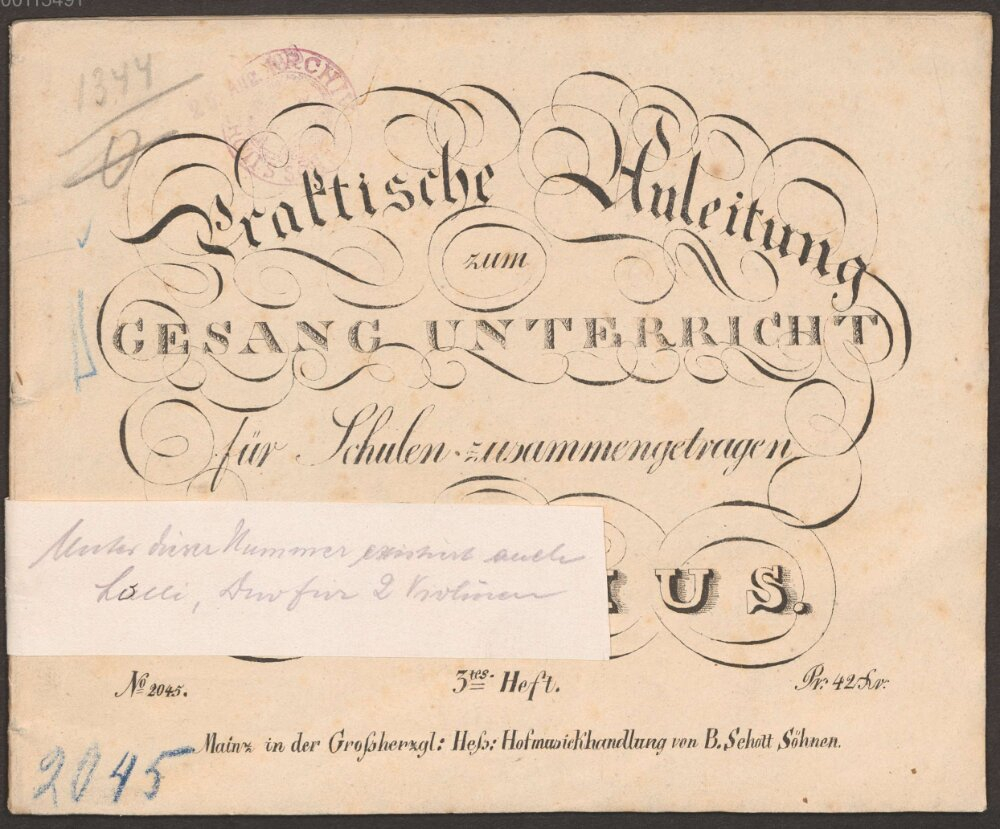 00115491
1344
ARCHIV
Praktische Anleitung
zum
GESANG UNTERRICHT
für Schulen zusammengetragen
Unter dieser Nummer existiert auch
Lolli, Duo für 2 Violinen
US.
No 2045.
3tes. Heft.
Pr: 42 Kr.
Mainz in der Großherzgl: Heß: Hofmusickhandlung von B. Schott Söhnen.
2045